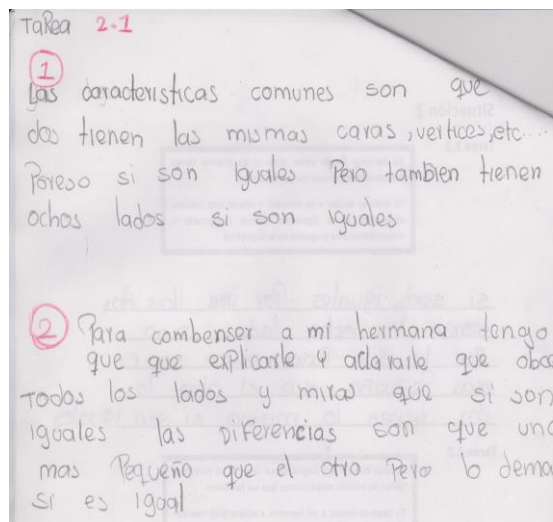 TaRea 2.1
1
Las caracteristicas comunes son que
dos tienen las mismas caras, vertices, etc....
Poreso si son iguales Pero tambien tienen
ochos lados si son iguales
2 Para combenser a mi hermana tengo
que que explicarle y aclararle que oba
Todos los lados y miras que si son
iguales las DiFerencias son que uno
mas Pequeño que el otro Pero lo dema
Si es igoal